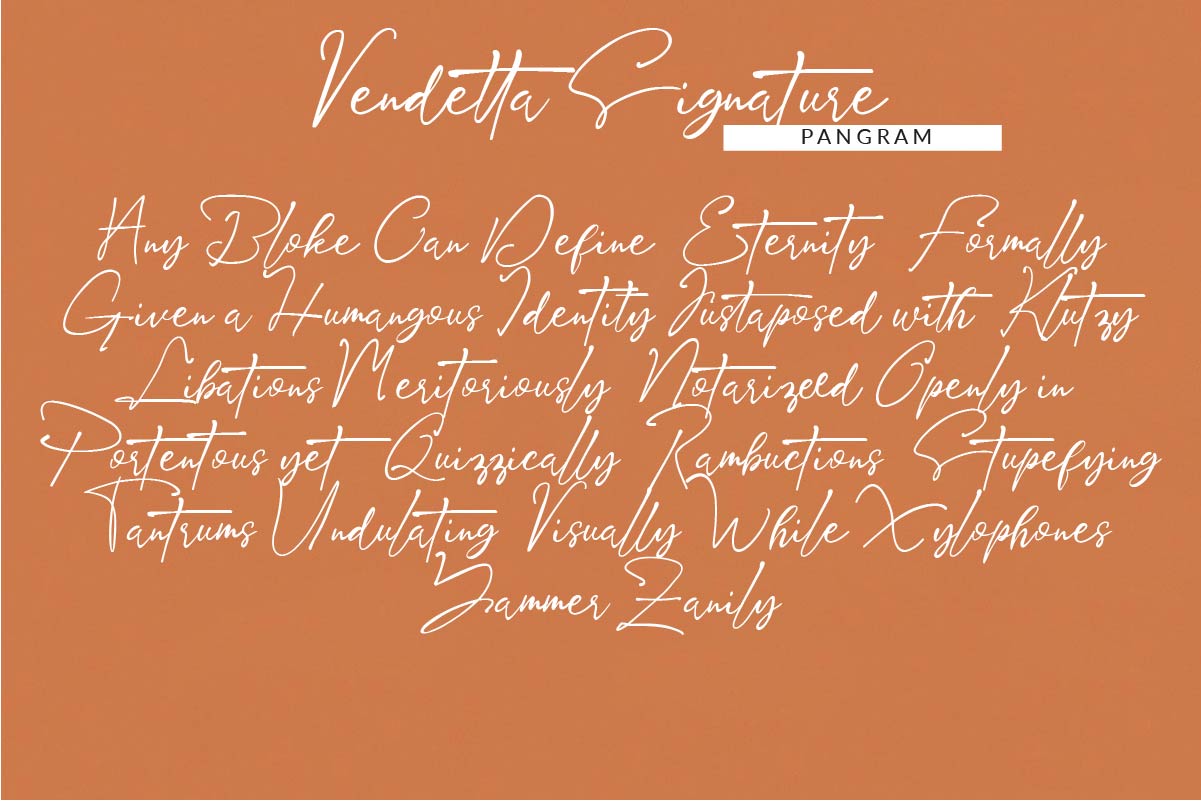 Vendetta Signature
PANGRAM
Any Bloke Can Define Eternity Formally
Given a Humangous Identity Justaposed with Klutzy
Libations Meritoriously Notarizeld Openly in
Portentous yet Quizzically Rambuctions Stupefying
Tantrums Undulating Visually While Xylophones
Yammer Zanily